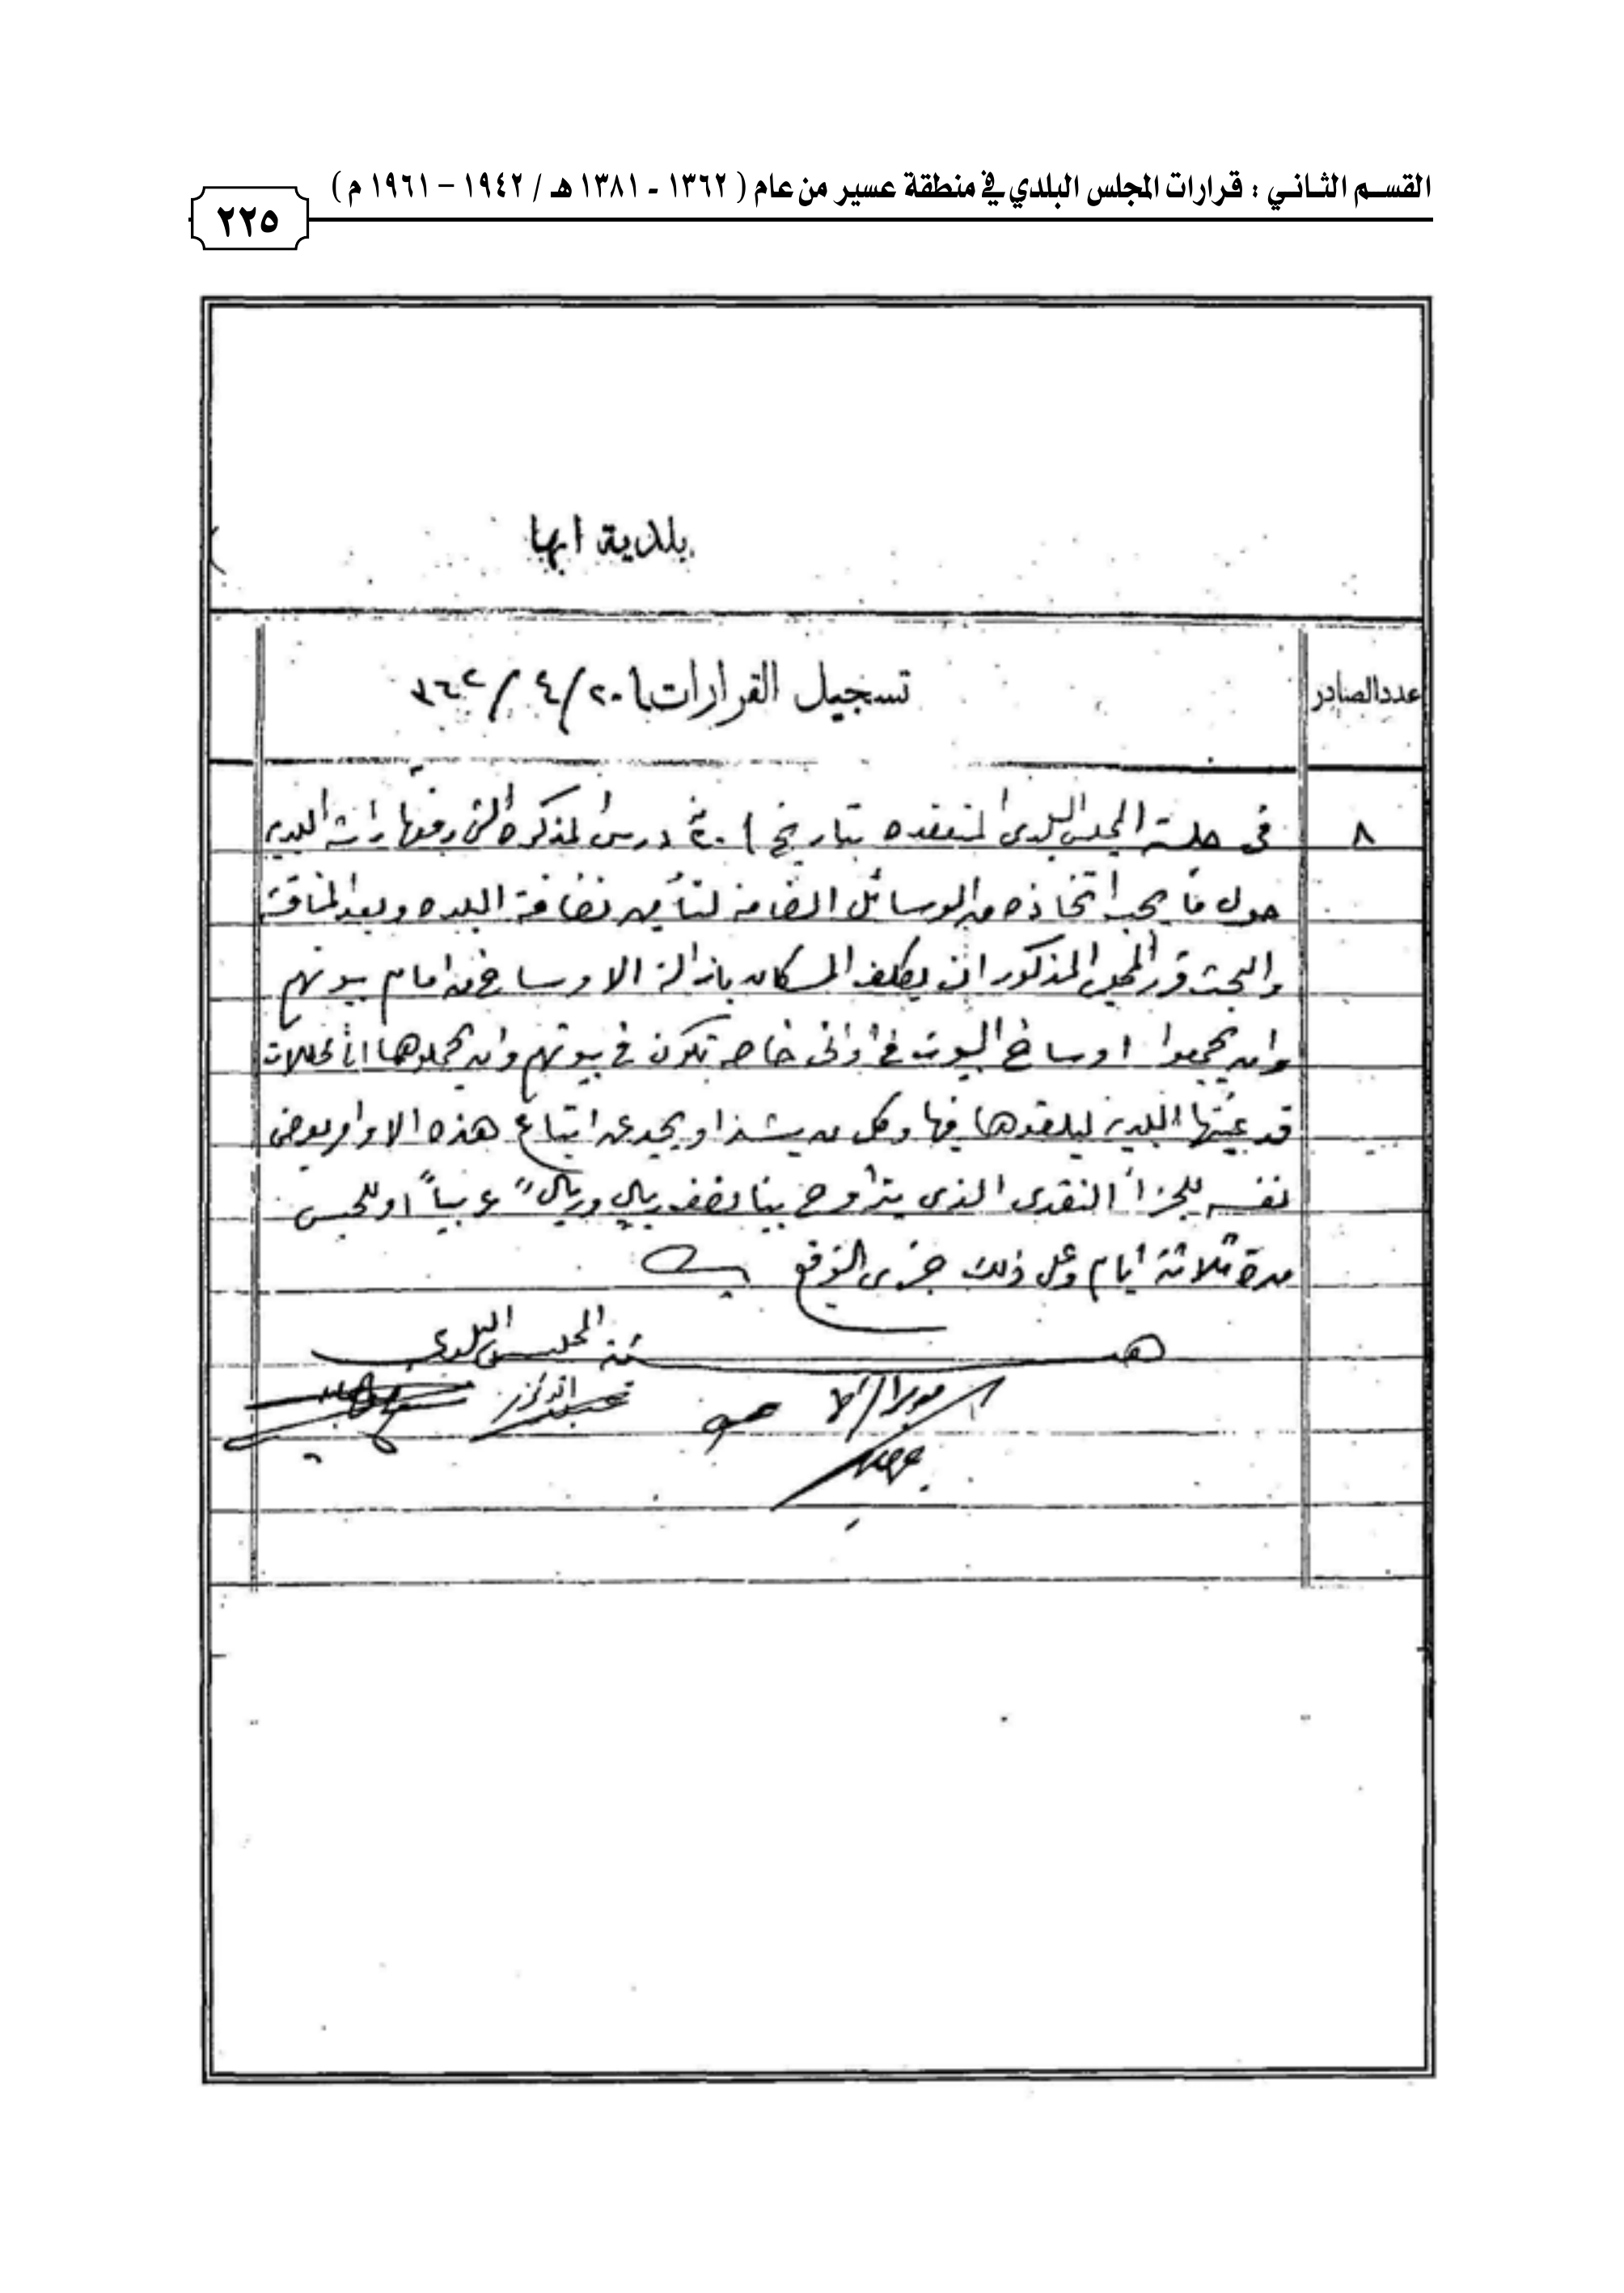 القسم الثاني : قرارات المجلس البلدي في منطقة عسير من عام ( ١٣٦٢ - ١٣٨١ هـ / ١٩٤٢ – ١٩٦١ م )
٢٢٥
بلدية ابها
عدد الصادر
تسجيل القرارات ٢٠ / ٤ / ٣٦٢
٨
في جلسة المجلس البلدي المنعقده بتاريخ درس المذكره التي رفعتها البلديه
حول ما يجب اتخاذه من الوسائل الضامنه لتأمين نضافة البلده وبعد المناقشة
والبحث قرر المجلس المذكور ان يكلف السكان بازالة الاوساخ من امام بيوتهم
وان يجمعوا اوساخ البيوت في أواني خاصه تكون في بيوتهم وان يحملوها الى محلات
قد عينتها البلديه ليلقوها فيها وكل من يشذ او يحيد عن اتباع هذه الاوامر يعرض
نفسه للجزأ النقدي الذي يتراوح بين نصف ريال وريال عربياً او للحبس
مدة ثلاثة ايام وعلى ذلك جرى التوقيع
هيئة المجلس البلدي